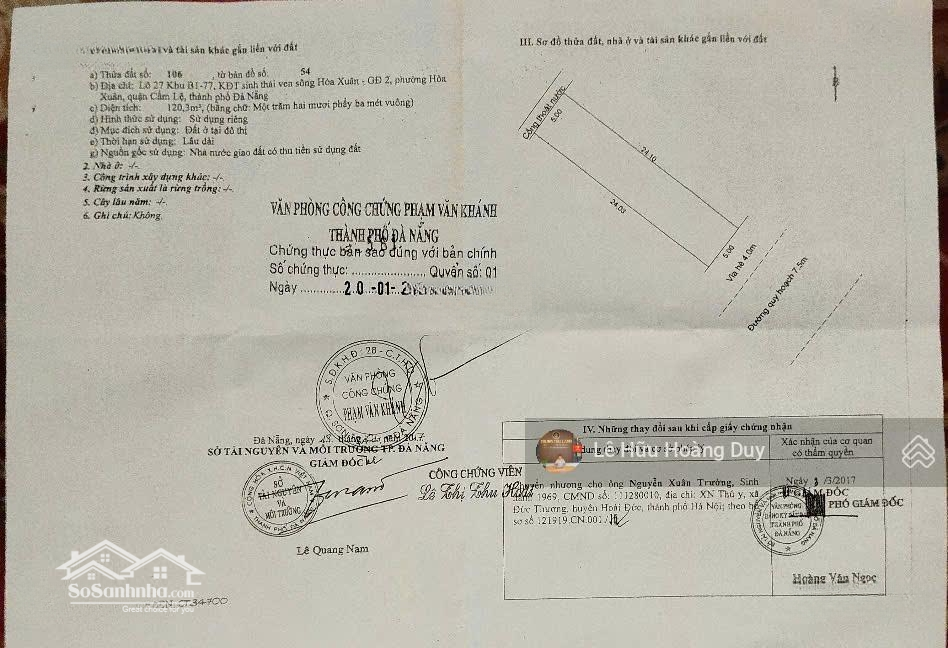 và tài sản khác gắn liền với đất
a) Thửa đất số: 106 , tờ bản đồ số. 54
b) Địa chỉ: Lô 27 Khu B1-77, KĐT sinh thái ven sông Hòa Xuân - GĐ 2, phường Hòa
Xuân, quận Cẩm Lệ, thành phố Đà Nẵng
c) Diện tích: 120,3m², (bằng chữ: Một trăm hai mươi phẩy ba mét vuông)
d) Hình thức sử dụng: Sử dụng riêng
đ) Mục đích sử dụng: Đất ở tại đô thị
e) Thời hạn sử dụng: Lâu dài
g) Nguồn gốc sử dụng: Nhà nước giao đất có thu tiền sử dụng đất
2. Nhà ở: -/-
3. Công trình xây dựng khác: -/-
4. Rừng sản xuất là rừng trồng: -/-
5. Cây lâu năm: -/-
6. Ghi chú: Không.
VĂN PHÒNG CÔNG CHỨNG PHẠM VĂN KHÁNH
THÀNH PHỐ ĐÀ NẴNG
Chứng thực bản sao đúng với bản chính
Số chứng thực: ...................... Quyển số: 01
Ngày ............ 20 -01- 2
S.Đ.K.H.Đ: 28 - C.T.H.D
VĂN PHÒNG
CÔNG CHỨNG
PHẠM VĂN KHÁNH
Đà Nẵng, ngày tháng năm 2017
SỞ TÀI NGUYÊN VÀ MÔI TRƯỜNG TP. ĐÀ NẴNG
GIÁM ĐỐC
CÔNG CHỨNG VIÊN
Lê Thị Thu
CỘNG HÒA X.H.C.N VIỆT NAM
SỞ
TÀI NGUYÊN
VÀ
MÔI TRƯỜNG
THÀNH PHỐ ĐÀ NẴNG
Lê Quang Nam
SoSanhnha.com
Great choice for you
CT34700
III. Sơ đồ thửa đất, nhà ở và tài sản khác gắn liền với đất
B
Cống thoát nước
5.00
24.10
24.03
5.00
Vỉa hè 4.0m
Đường quy hoạch 7,5m
IV. Những thay đổi sau khi cấp giấy chứng nhận
dung thay đổi và cơ sở pháp lý
Xác nhận của cơ quan
có thẩm quyền
Lê Hữu Hoàng Duy
Chuyển nhượng cho ông Nguyễn Xuân Trường, Sinh
năm: 1969, CMND số: 111280010, địa chỉ: XN Thú y, xã
Đức Thượng, huyện Hoài Đức, thành phố Hà Nội; theo hồ
sơ số 121919.CN.001
Ngày /3/2017
GIÁM ĐỐC
PHÓ GIÁM ĐỐC
VĂN PHÒNG
ĐĂNG KÝ ĐẤT ĐAI
THÀNH PHỐ
ĐÀ NẴNG
Hoàng Văn Ngọc